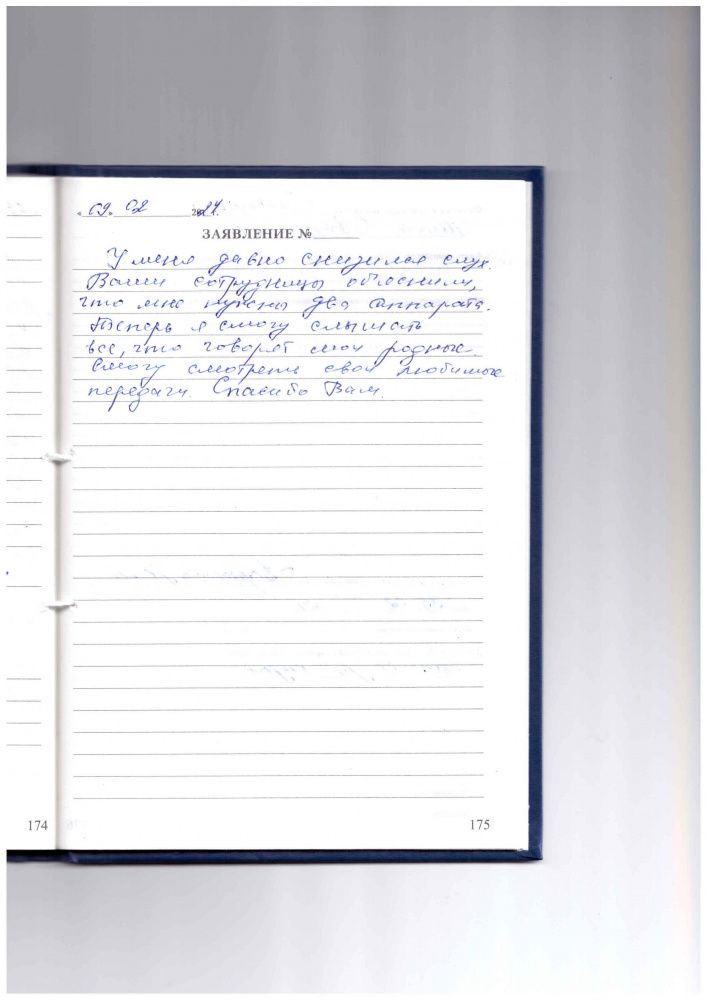 « 09 » 02 2024.
ЗАЯВЛЕНИЕ №
У меня давно снизился слух.
Ваши сотрудницы объяснили,
что мне нужны два аппарата.
Теперь я смогу слышать
все, что говорят мои родные.
Смогу смотреть свои любимые
передачи. Спасибо Вам.
174
175